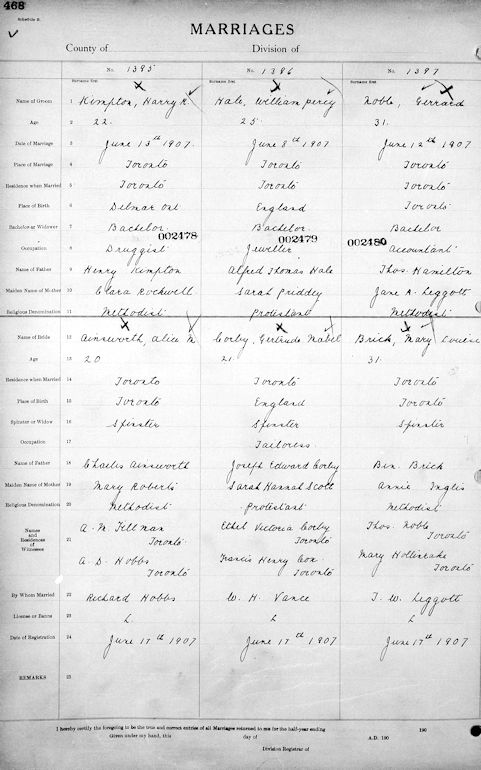 468
Schedule B.
MARRIAGES
County of Division of
No. 1395 No. 1396 No. 1397
Surname first Surname first Surname first
Name of Groom 1 Kimpton, Harry R. Hale, William Percy Noble, Gerrard
Age 2 22. 25. 31.
Date of Marriage 3 June 13th 1907. June 8th 1907 June 12th 1907
Place of Marriage 4 Toronto Toronto Toronto
Residence when Married 5 Toronto Toronto Toronto
Place of Birth 6 Delmar Ont England Toronto
Bachelor or Widower 7 Bachelor Bachelor Bachelor
002478 002479 002480
Occupation 8 Druggist Jeweller Accountant
Name of Father 9 Henry Kimpton Alfred Thomas Hale Thos. Hamilton
Maiden Name of Mother 10 Clara Rockwell Sarah Priddey Jane A. Leggott
Religious Denomination 11 Methodist Protestant Methodist
Name of Bride 12 Ainsworth, Alice M. Corby, Gertrude Mabel Brick, Mary Louise
Age 13 20 21. 31.
Residence when Married 14 Toronto Toronto Toronto
Place of Birth 15 Toronto England Toronto
Spinster or Widow 16 Spinster Spinster Spinster
Occupation 17 Tailoress
Name of Father 18 Charles Ainsworth Joseph Edward Corby Ben. Brick
Maiden Name of Mother 19 Mary Roberts Sarah Hannah Scott Annie Inglis
Religious Denomination 20 Methodist Protestant Methodist
Names and Residences of Witnesses 21
A. M. Tellman Ethel Victoria Corby Thos. Noble
Toronto Toronto Toronto
A. D. Hobbs Francis Henry Cox Mary Hollinrake
Toronto Toronto Toronto
By Whom Married 22 Richard Hobbs W. H. Vance T. W. Leggott
License or Banns 23 L L L
Date of Registration 24 June 17th 1907 June 17th 1907 June 17th 1907
REMARKS 25
I hereby certify the foregoing to be the true and correct entries of all Marriages returned to me for the half-year ending 190
Given under my hand, this day of A.D. 190
Division Registrar of